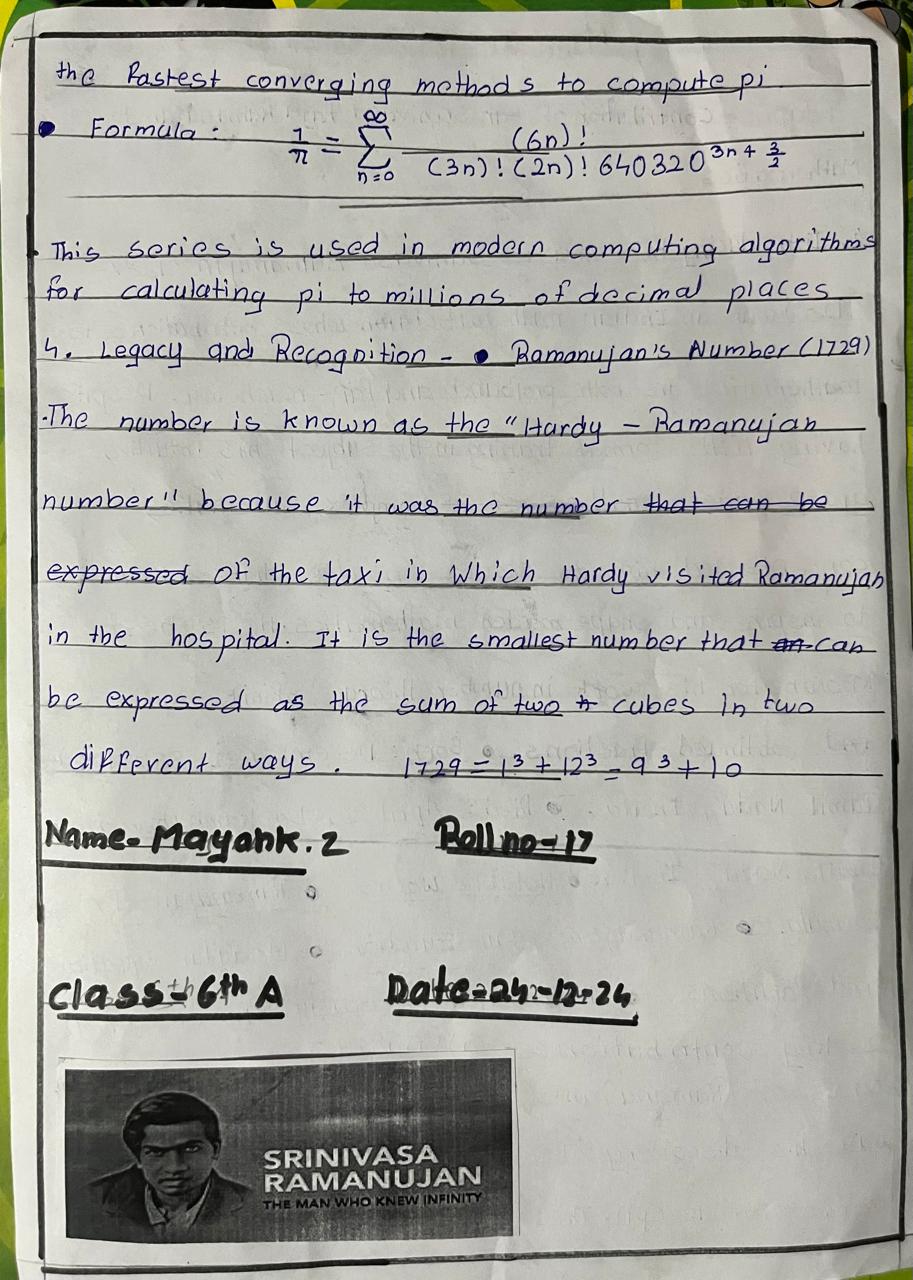 the fastest converging methods to compute pi
• Formula : 1/π = ∑ n=0 ∞ (6n)! / (3n)! (2n)! 640320^(3n + 3/2)
• This series is used in modern computing algorithms
for calculating pi to millions of decimal places
4. Legacy and Recognition - • Ramanujan's Number (1729)
·The number is known as the "Hardy - Ramanujan
number" because it was the number ~~that can be~~
~~expressed~~ of the taxi in which Hardy visited Ramanujan
in the hospital. It is the smallest number that ~~an~~ can
be expressed as the sum of two cubes in two
different ways. 1729 = 1³ + 12³ = 9³ + 10
Name- Mayank. Z Roll no-17
Class- 6th A Date-24-12-24
SRINIVASA
RAMANUJAN
THE MAN WHO KNEW INFINITY